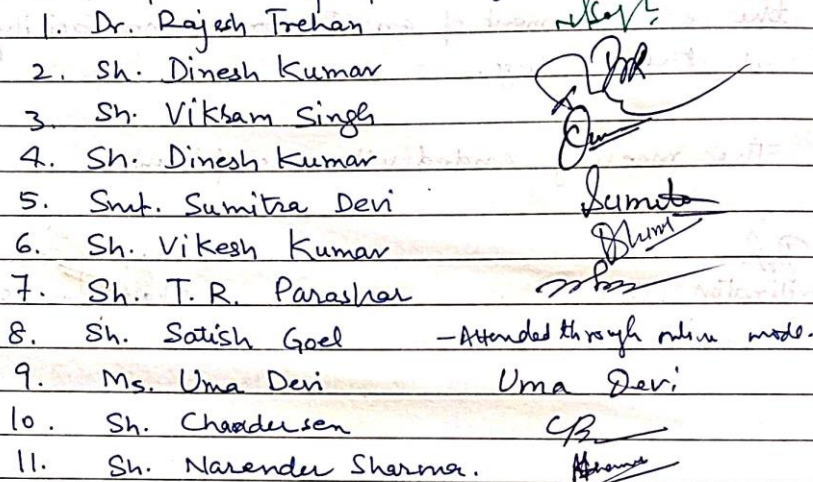 1. Dr. Rajesh Trehan
2. Sh. Dinesh Kumar
3. Sh. Vikram Singh
4. Sh. Dinesh Kumar
5. Smt. Sumitra Devi Sumita
6. Sh. Vikesh Kumar
7. Sh. T.R. Parashar
8. Sh. Satish Goel - Attended through online mode.
9. Ms. Uma Devi Uma Devi
10. Sh. Chandersen
11. Sh. Narender Sharma.